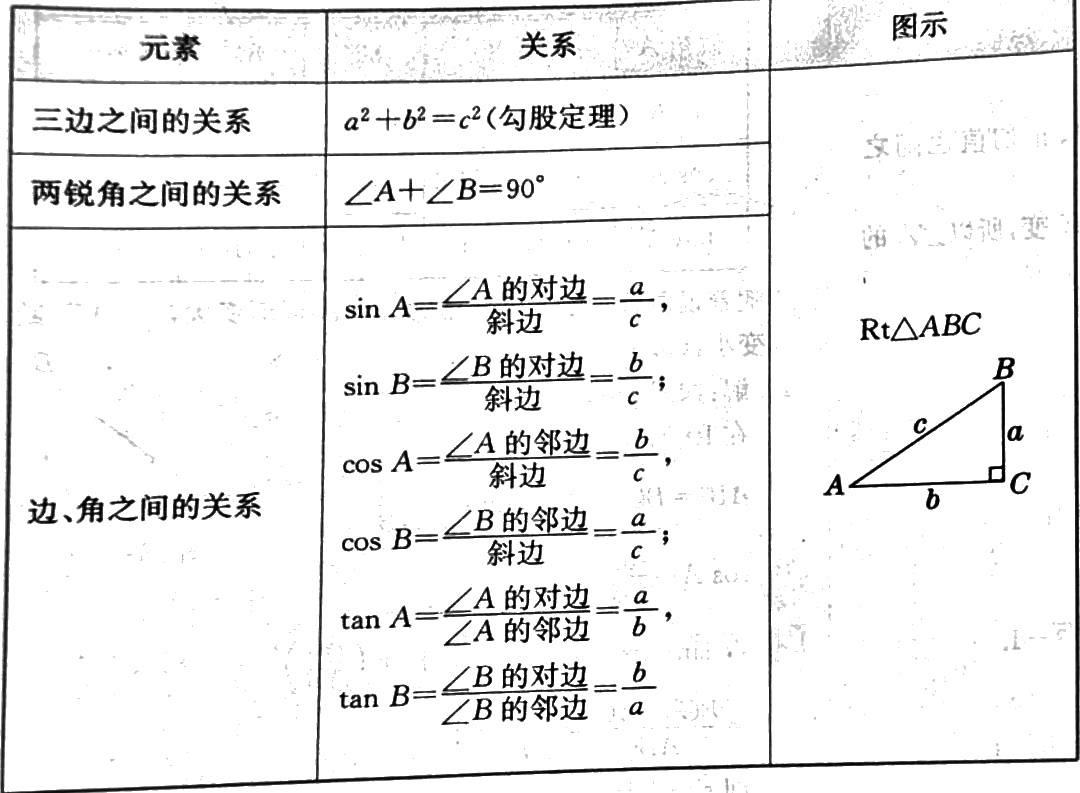 元素 关系 图示
三边之间的关系 a²+b²=c²(勾股定理)
两锐角之间的关系 ∠A+∠B=90°
边、角之间的关系
sin A=∠A 的对边/斜边=a/c,
sin B=∠B 的对边/斜边=b/c;
cos A=∠A 的邻边/斜边=b/c,
cos B=∠B 的邻边/斜边=a/c;
tan A=∠A 的对边/∠A 的邻边=a/b,
tan B=∠B 的对边/∠B 的邻边=b/a
Rt△ABC
B
c
a
A
b
C